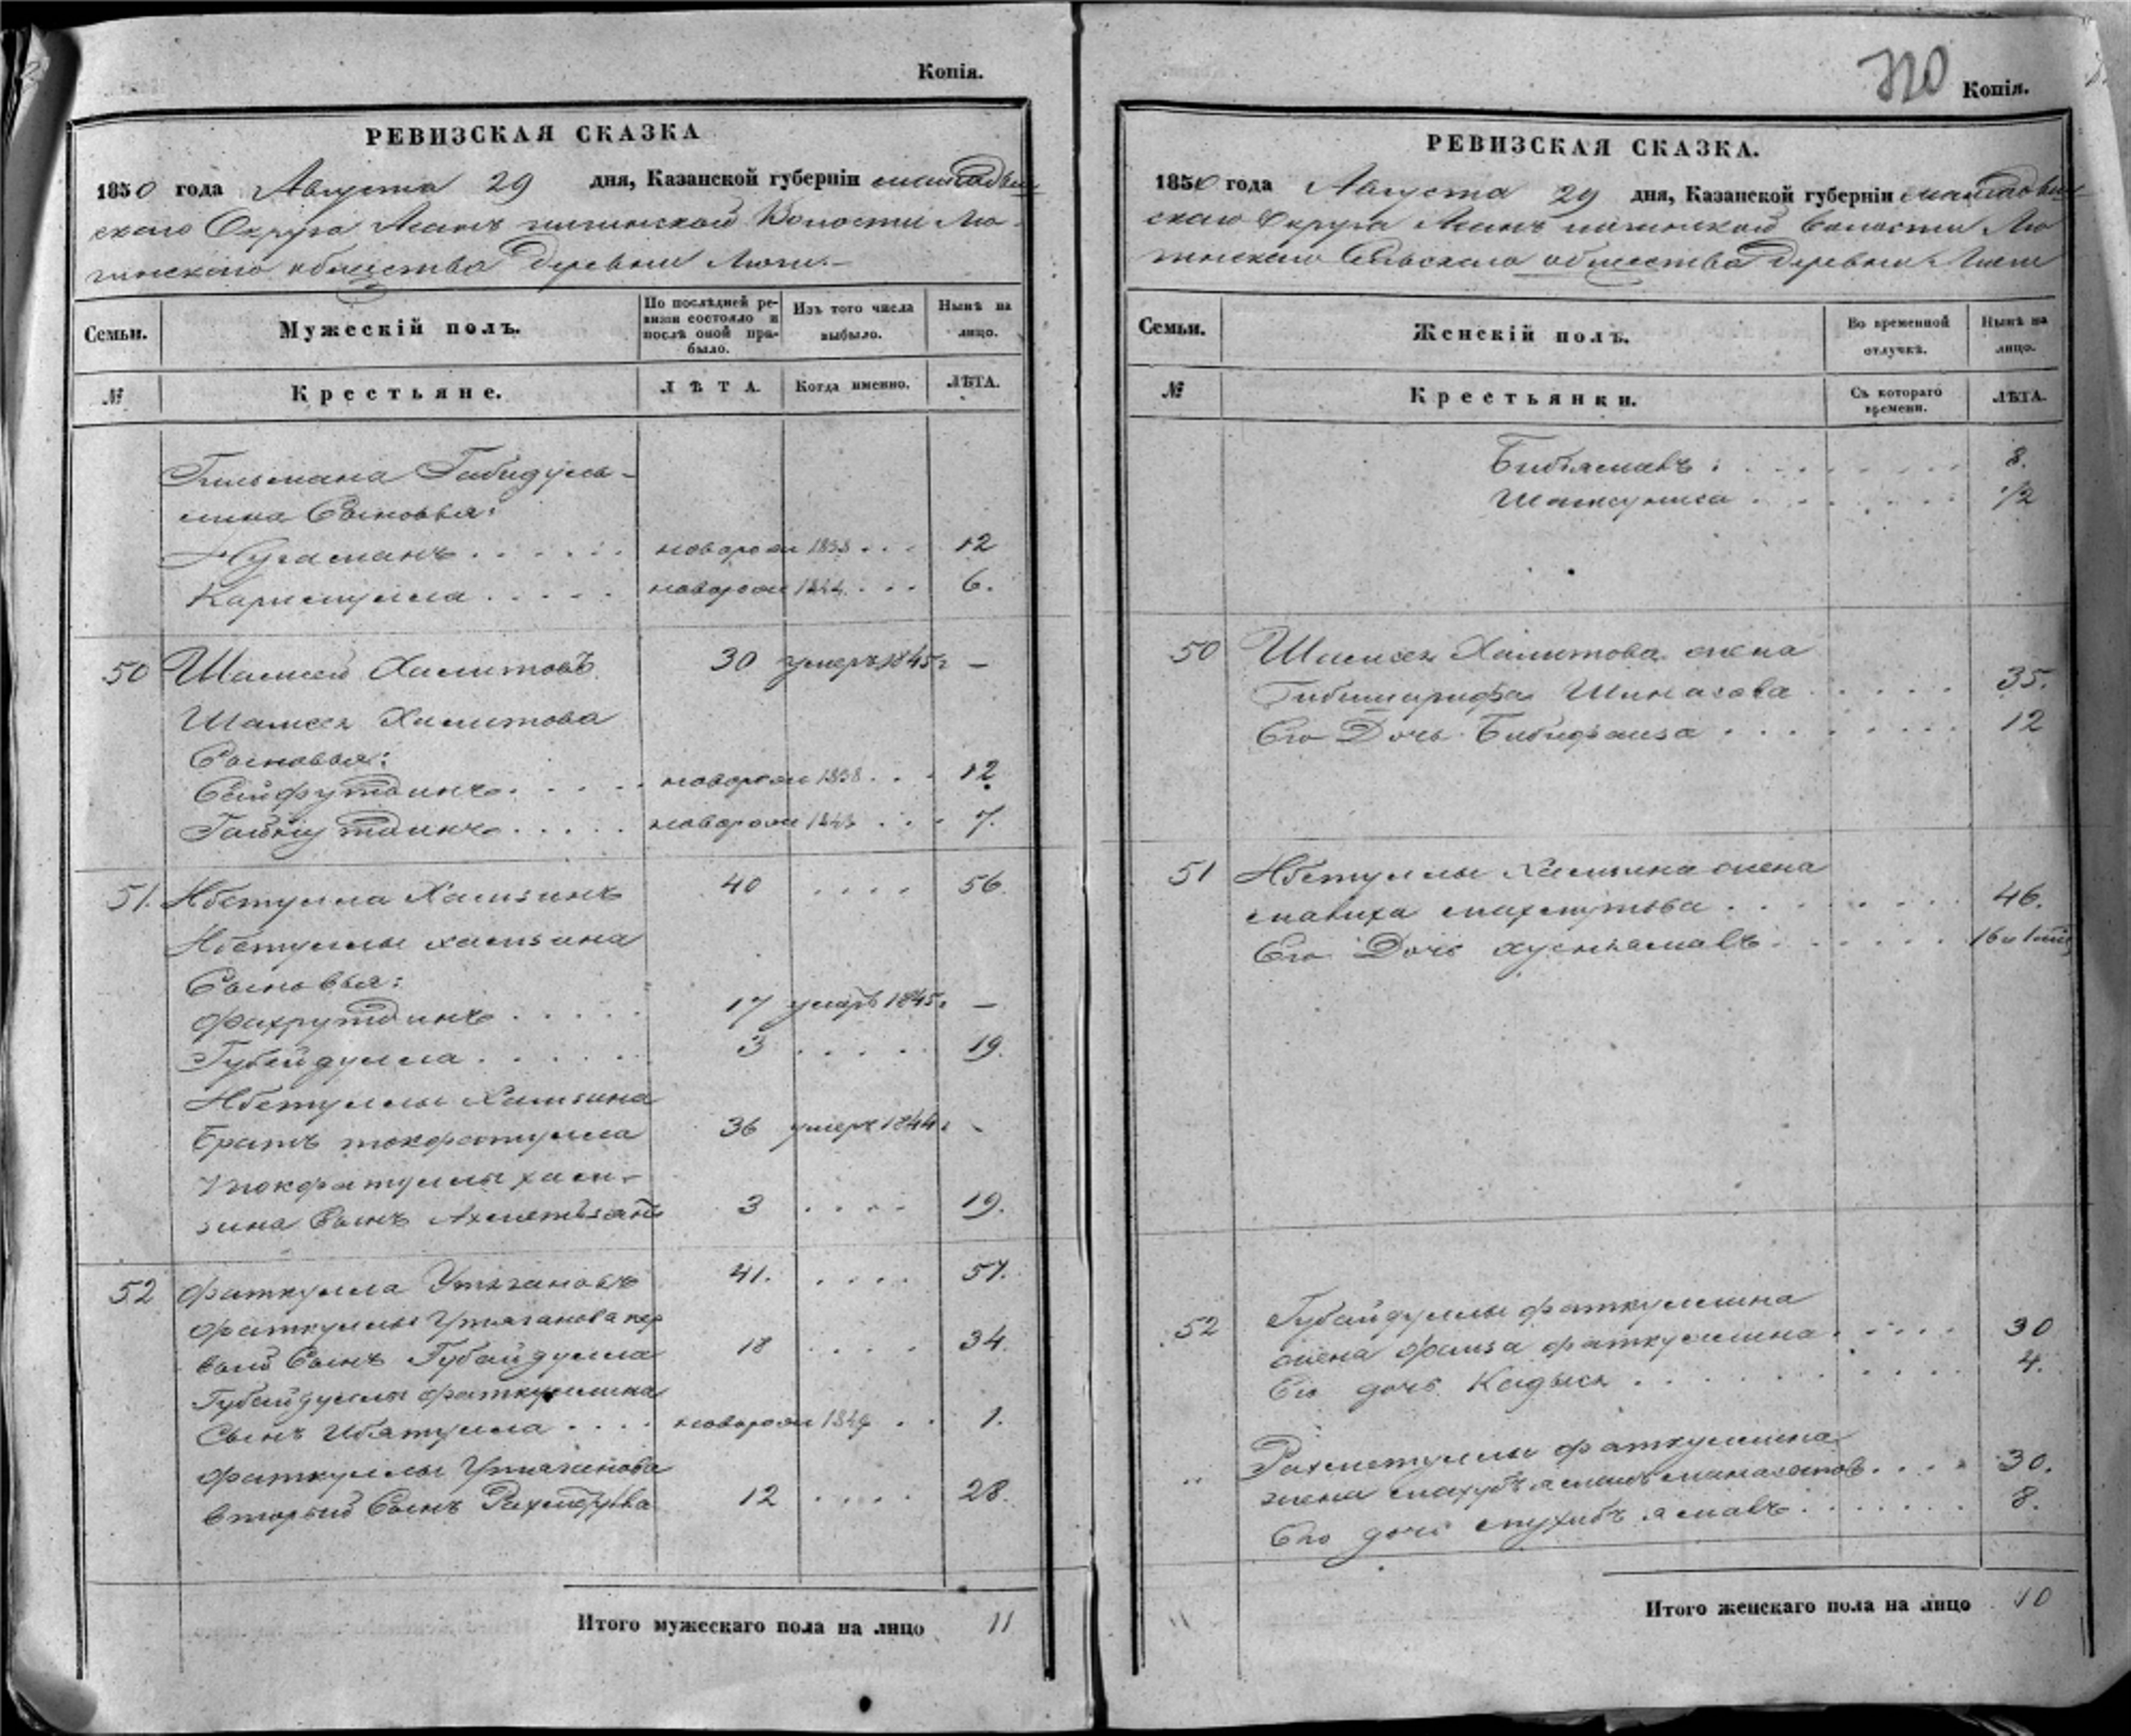 Копія.
РЕВИЗСКАЯ СКАЗКА
1850 года Августа 29 дня, Казанской губерніи мамадыш
скаго Округа Волости Лю
гинскаго общества Деревни Люги.
Семьи. Мужескій полъ. По послѣдней ревизіи состояло и послѣ оной прибыло. Изъ того числа выбыло. Нынѣ на лицо.
№ Крестьяне. ЛѢТА. Когда именно. ЛѢТА.
Гильмана Габидуль-
лина Сыновья:
Нугаманъ новорож 1838 12
Каримулла новорож 1844 6.
50 Шамсей Хамитовъ 30 умеръ 1845г —
Шамсея Хамитова
Сыновья:
Сайфутдинъ новорож 1838 12
Гайнутдинъ новорож 1843 7.
51. Абетулла Хамзинъ 40 56.
Абетуллы хамзина
Сыновья:
Фахрутдинъ 17 умеръ 1845г —
Губейдулла 3 19.
Абетуллы Хамзина
Братъ 36 умеръ 1844г -
хам-
зина Сынъ Ахметьзянъ 3 19.
52 Фаткулла Утягановъ 41. 57.
Фаткуллы Утяганова пер
вый Сынъ Губайдулла 18 34
Губайдуллы фаткуллина
Сынъ Ибятулла новорож 1849 1.
Фаткуллы Утяганова
Вторый Сынъ 12 28.
Итого мужескаго пола на лицо 11
320 Копія.
РЕВИЗСКАЯ СКАЗКА.
1850 года Августа 29 дня, Казанской губерніи мамадыш
скаго Округа Волости Лю
гинскаго Сельскаго общества Деревни Люги
Семьи. Женскій полъ. Во временной отлучкѣ. Нынѣ на лицо.
№ Крестьянки. Съ котораго времени. ЛѢТА.
Бибіямалъ 8.
1/2
50 Шамсея Хамитова жена
Бибишарифа 35.
Его Дочь Бибифаиза 12
51 Абетуллы Хамзина жена
махмутова 46.
Его Дочь хуснъямалъ
52 Губайдуллы фаткуллина
жена фаиза фаткуллина 30
Его дочь Кадыся 4.
" Рахметуллы фаткуллина
жена 30.
Его дочь мухибъямалъ 8.
Итого женскаго пола на лицо 10